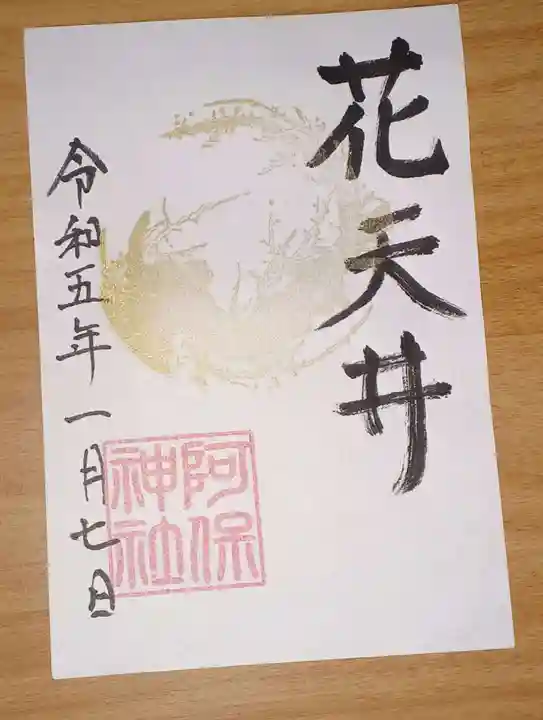 花天井
阿保
神社
令和五年一月七日